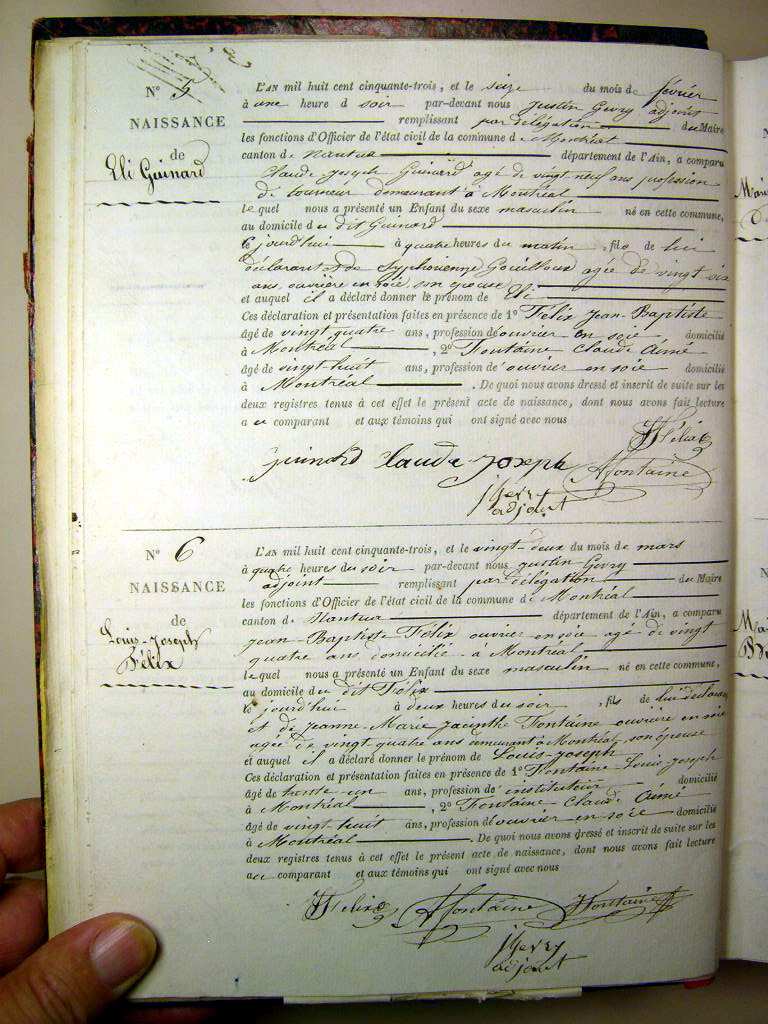 N° 5
NAISSANCE
de
Eli Guinard
L'AN mil huit cent cinquante-trois, et le seize du mois de février
à une heure d soir par-devant nous Justin Gevry adjoint
remplissant par délégation du Maire
les fonctions d'Officier de l'état civil de la commune de Montréal
canton de Nantua département de l'Ain, a comparu
Claude-Joseph Guinard agé de vingt neuf ans profession
de tourneur demeurant à Montréal
lequel nous a présenté un Enfant du sexe masculin né en cette commune,
au domicile du dit Guinard
le jourd'hui à quatre heures du matin, fils de lui
déclarant et de Symphorienne agée de vingt six
ans, ouvrière en soie, son épouse
et auquel il a déclaré donner le prénom de Eli
Ces déclaration et présentation faites en présence de 1° Félix Jean-Baptiste
âgé de vingt quatre ans, profession d'ouvrier en soie domicilié
à Montréal, 2° Fontaine Claude Aimé
âgé de vingt-huit ans, profession de ouvrier en soie domicilié
à Montréal. De quoi nous avons dressé et inscrit de suite sur les
deux registres tenus à cet effet le présent acte de naissance, dont nous avons fait lecture
au comparant et aux témoins qui ont signé avec nous
Félix
guinard claude joseph Fontaine
J Gevry
adjoint
N° 6
NAISSANCE
de
Louis-Joseph
Félix
L'AN mil huit cent cinquante-trois, et le vingt-deux du mois de mars
à quatre heures du soir par-devant nous Justin Gevry
adjoint remplissant par délégation du Maire
les fonctions d'Officier de l'état civil de la commune de Montréal
canton de Nantua département de l'Ain, a comparu
Jean-Baptiste Félix ouvrier en soie agé de vingt
quatre ans domicilié à Montréal
lequel nous a présenté un Enfant du sexe masculin né en cette commune,
au domicile du dit Félix
le jourd'hui à deux heures du soir, fils de lui déclarant
et de Jeanne-Marie Jacinthe Fontaine ouvrière en soie
agée de vingt quatre ans demeurant à Montréal son épouse
et auquel il a déclaré donner le prénom de Louis-Joseph
Ces déclaration et présentation faites en présence de 1° Fontaine Louis Joseph
âgé de trente-un ans, profession d'instituteur domicilié
à Montréal, 2° Fontaine Claude Aimé
âgé de vingt huit ans, profession d'ouvrier en soie domicilié
à Montréal. De quoi nous avons dressé et inscrit de suite sur les
deux registres tenus à cet effet le présent acte de naissance, dont nous avons fait lecture
au comparant et aux témoins qui ont signé avec nous
Félix Fontaine Fontaine
J Gevry
adjoint